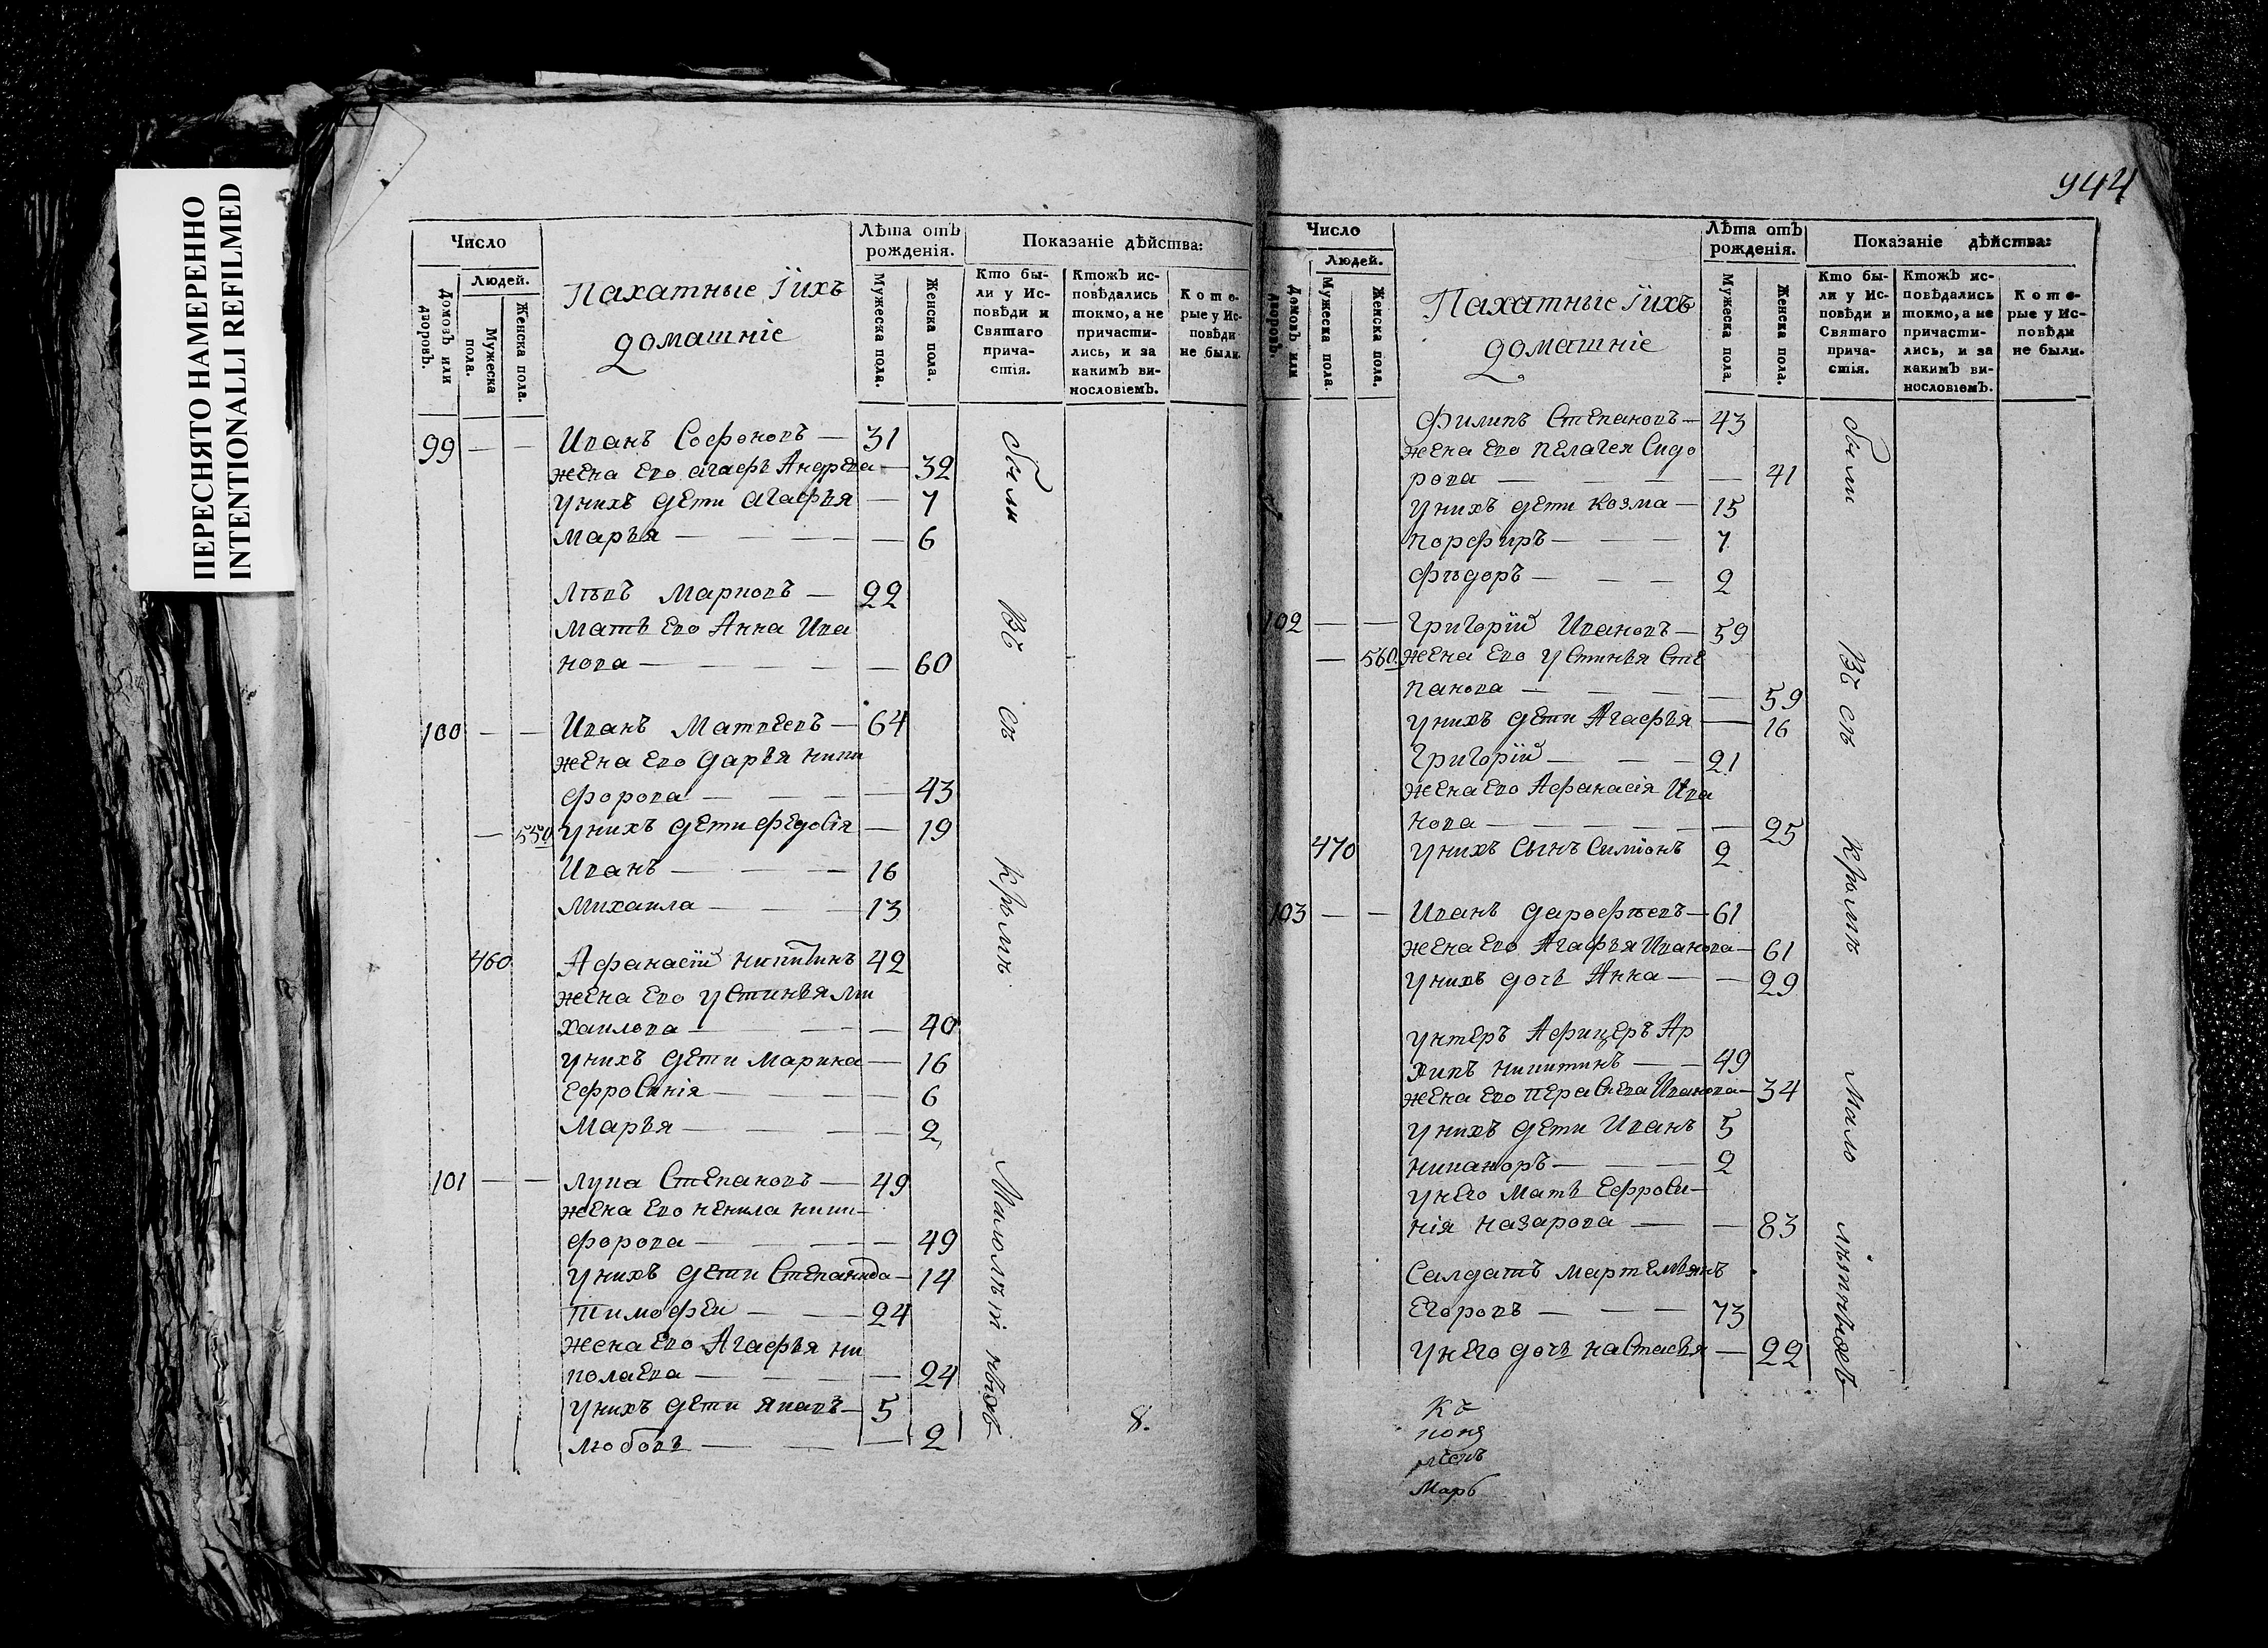 ПЕРЕСНЯТО НАМЕРЕННО
INTENTIONALLI REFILMED
Число
Людей.
Домовъ или дворовъ.
Мужеска пола.
Женска пола.
Пахатные Їихъ
домашніе
Лѣта отъ
рожденія.
Мужеска пола.
Женска пола.
Показаніе дѣйства:
Кто бы-
ли у Ис-
повѣди и
Святаго
прича-
стія.
Ктожъ ис-
повѣдались
токмо, а не
причасти-
лись, и за
какимъ ви-
нословіемъ.
Кото-
рые у Ис-
повѣди
не были.
99 — — Иванъ Софоновъ — 31
жена Его Агафъ Андрева — 32
унихъ дети Агафья — 7
Марья — — — — 6
Лѣвъ Марковъ — 22
Мать Его Анна Ива
нова — — — — 60
100 — — Иванъ Матвеевъ — 64
жена Его Дарья ники
форова — — — — 43
— 550 унихъ дети Федосія — 19
Иванъ — — — 16
Михаила — — — 13
460 Афанасій никитинъ 42
жена Его устинья Ми
хаилова — — — 40
унихъ дети Марина — 16
Ефросинія — — — 6
Марья — — — — 2
101 — — Лука Степановъ — 49
жена Его ненила ники-
форова — — — — 49
унихъ дети Степанида — 14
тимофеи — — 24
жена Его Агафья ни
колаева — — — — 24
унихъ дети Яковъ — 5
любовь — — — 2
были
Всѣ
съ
кромѣ
Малолѣтныхъ
8.
944
Число
Людей.
Домовъ или дворовъ.
Мужеска пола.
Женска пола.
Пахатные Їихъ
домашніе
Лѣта отъ
рожденія.
Мужеска пола.
Женска пола.
Показаніе дѣйства:
Кто бы-
ли у Ис-
повѣди и
Святаго
прича-
стія.
Ктожъ ис-
повѣдались
токмо, а не
причасти-
лись, и за
какимъ ви-
нословіемъ.
Кото-
рые у Ис-
повѣди
не были.
Филипъ Степановъ — 43
жена Его Пелагея Сидо
рова — — — — 41
унихъ дети Козма — 15
порфиръ — — — 7
Фѣдоръ — — — 2
102 — — Григорій Ивановъ — 59
— 560 жена Его устинья Сте
панова — — — — 59
унихъ дети Агафья — 16
Григорїй — — — 21
жена Его Афанасія Ива
нова — — — — 25
470 унихъ сынъ Симіонъ 2
103 — — Иванъ Дарофѣевъ — 61
жена Его Агафья Иванова — 61
унихъ дочь Анна — — 29
унтеръ Афицеръ Ар
хипъ никитинъ — — 49
жена Его Пераскева Иванова — 34
унихъ дети Иванъ 5
никаноръ — — — 2
унего мать Ефроси-
нія назарова — — 83
Салдатъ мартемьянъ
Егоровъ — — — 73
унего дочь настасья — 22
были
Всѣ
кромѣ
Мало
лѣтныхъ